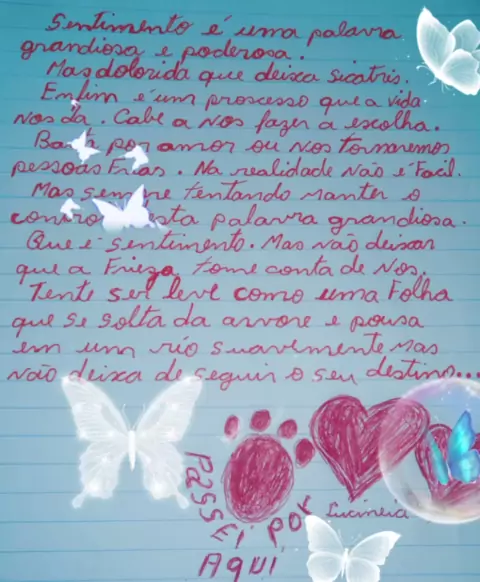 Sentimento é uma palavra
grandiosa e poderosa.
Mas dolorida que deixa sicatris.
Enfim é um proscesso que a vida
nos dá. Cabe a nos fazer a escolha.
por amor ou nos tornaremos
pessoas frias. Na realidade não é facil.
Mas sempre tentando manter o
palavra grandiosa.
Que é sentimento. Mas não deixar
que a Frieza tome conta de nos.
Tente ser leve como uma Folha
que se solta da arvore e pousa
em um rio suavemente mas
não deixa de seguir o seu destino...
Passei por
Aqui
Lucineia